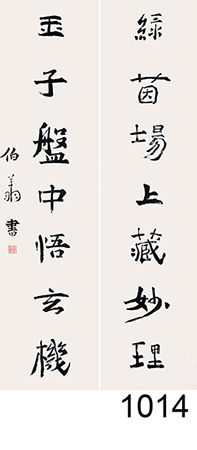 綠茵場上藏妙理
玉子盤中悟玄機
伯翁書
1014